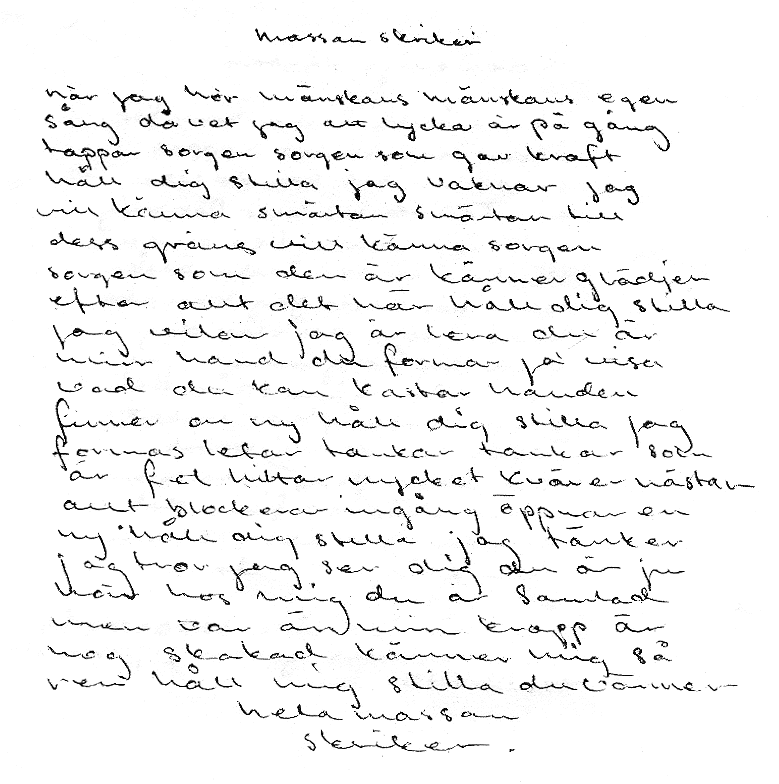 massan skriker
när jag hör mänskans mänskans egen
sång då vet jag att lycka är på gång
tappar sorgen sorgen som gav kraft
håll dig stilla jag vaknar jag
vill känna smärtan smärtan till
dess gräns vill känna sorgen
sorgen som den är känner glädjen
efter allt det här håll dig stilla
jag vilar jag är lera du är
min hand du formar på visa
vad du kan kastar handen
finner en ny håll dig stilla jag
formas letar tankar tankar som
är fel hittar mycket kvar er nästan
allt blockerar ingång öppnar en
ny håll dig stilla jag tänker
jag tror jag ser dig du är ju
här hos mig du är samlad
men var än min kropp är
nog skakad känner mig så
ren håll mig stilla du värmer
hela massan
skriker.